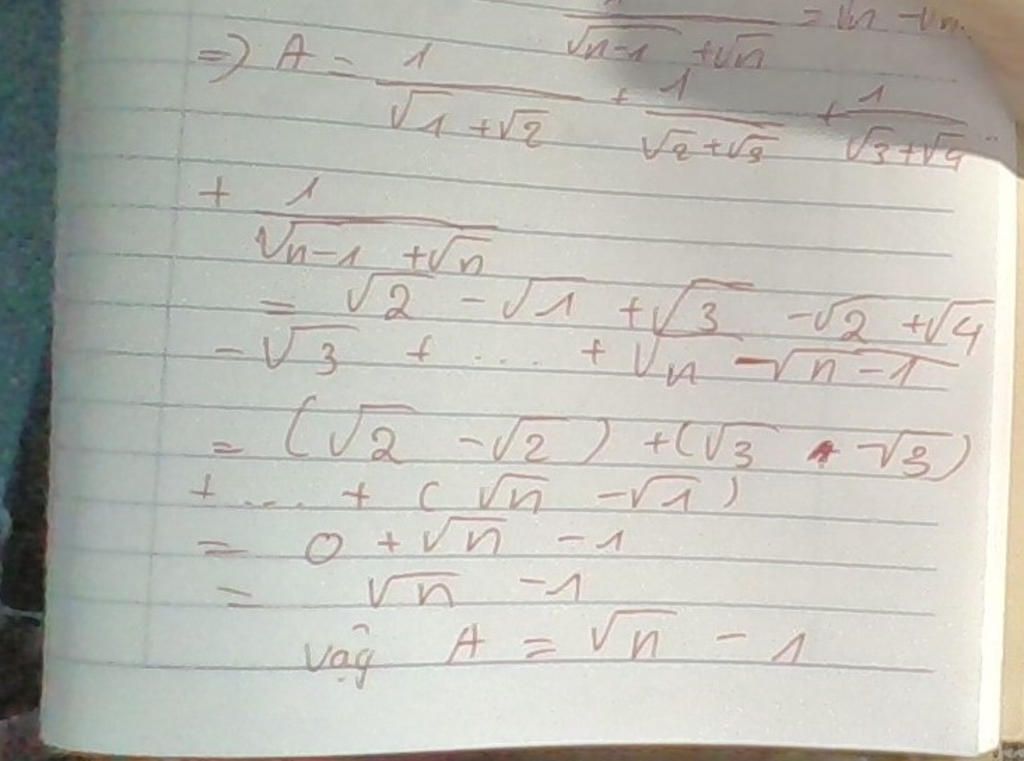 1/(√n-1 + √n) = √n - √n
=> A = 1/(√1 + √2) + 1/(√2 + √3) + 1/(√3 + √4) ..
+ 1/(√n-1 + √n)
= √2 - √1 + √3 - √2 + √4
- √3 + .... + √n - √n-1
= (√2 - √2) + (√3 - √3)
+ .... + (√n - √1)
= 0 + √n - 1
= √n - 1
Vậy A = √n - 1